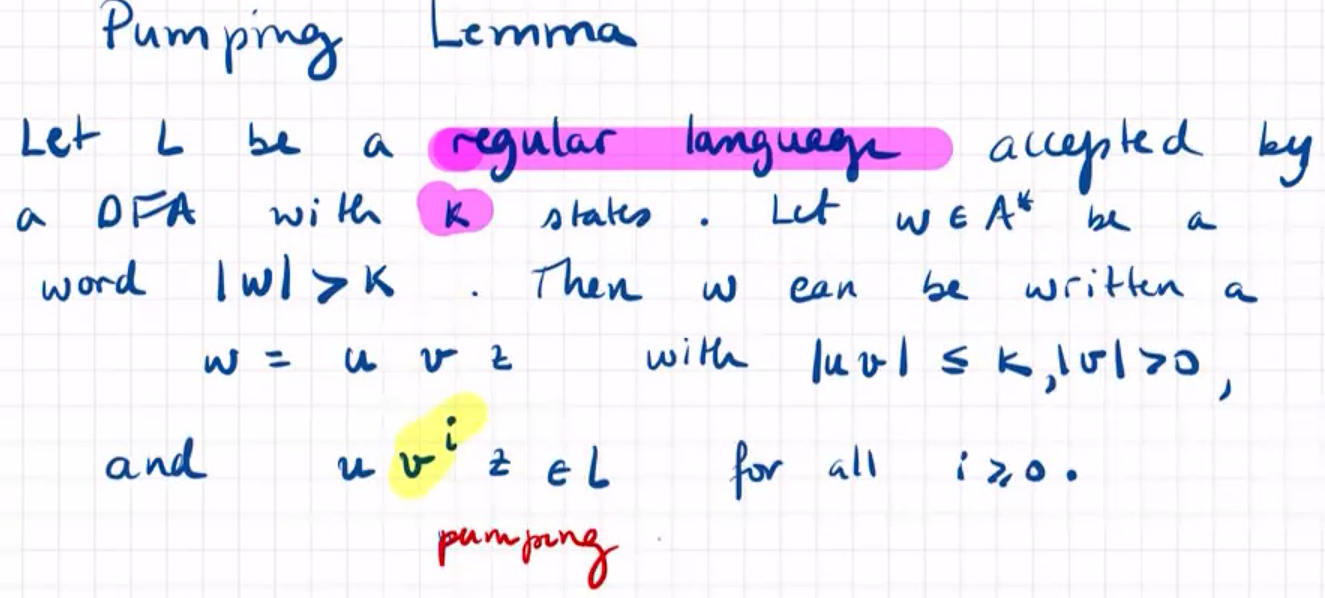 Pumping Lemma
Let L be a regular language accepted by
a DFA with K states. Let w ∈ A* be a
word |w| > K. Then w can be written a
w = u v z with |uv| ≤ K, |v| > 0,
and u vⁱ z ∈ L for all i ≥ 0.
pumping